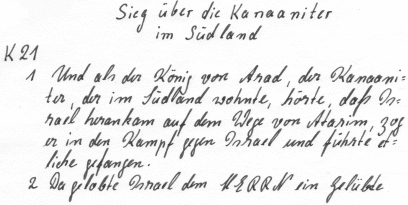 Sieg über die Kanaaniter
im Südland
K 21
1 Und als der König von Arad, der Kanaani=
ter, der im Südland wohnte, hörte, daß Is=
rael herankam auf dem Wege von Atarim, zog
er in den Kampf gegen Israel und führte et=
liche gefangen.
2 Da gelobte Israel dem HERRN ein Gelübde